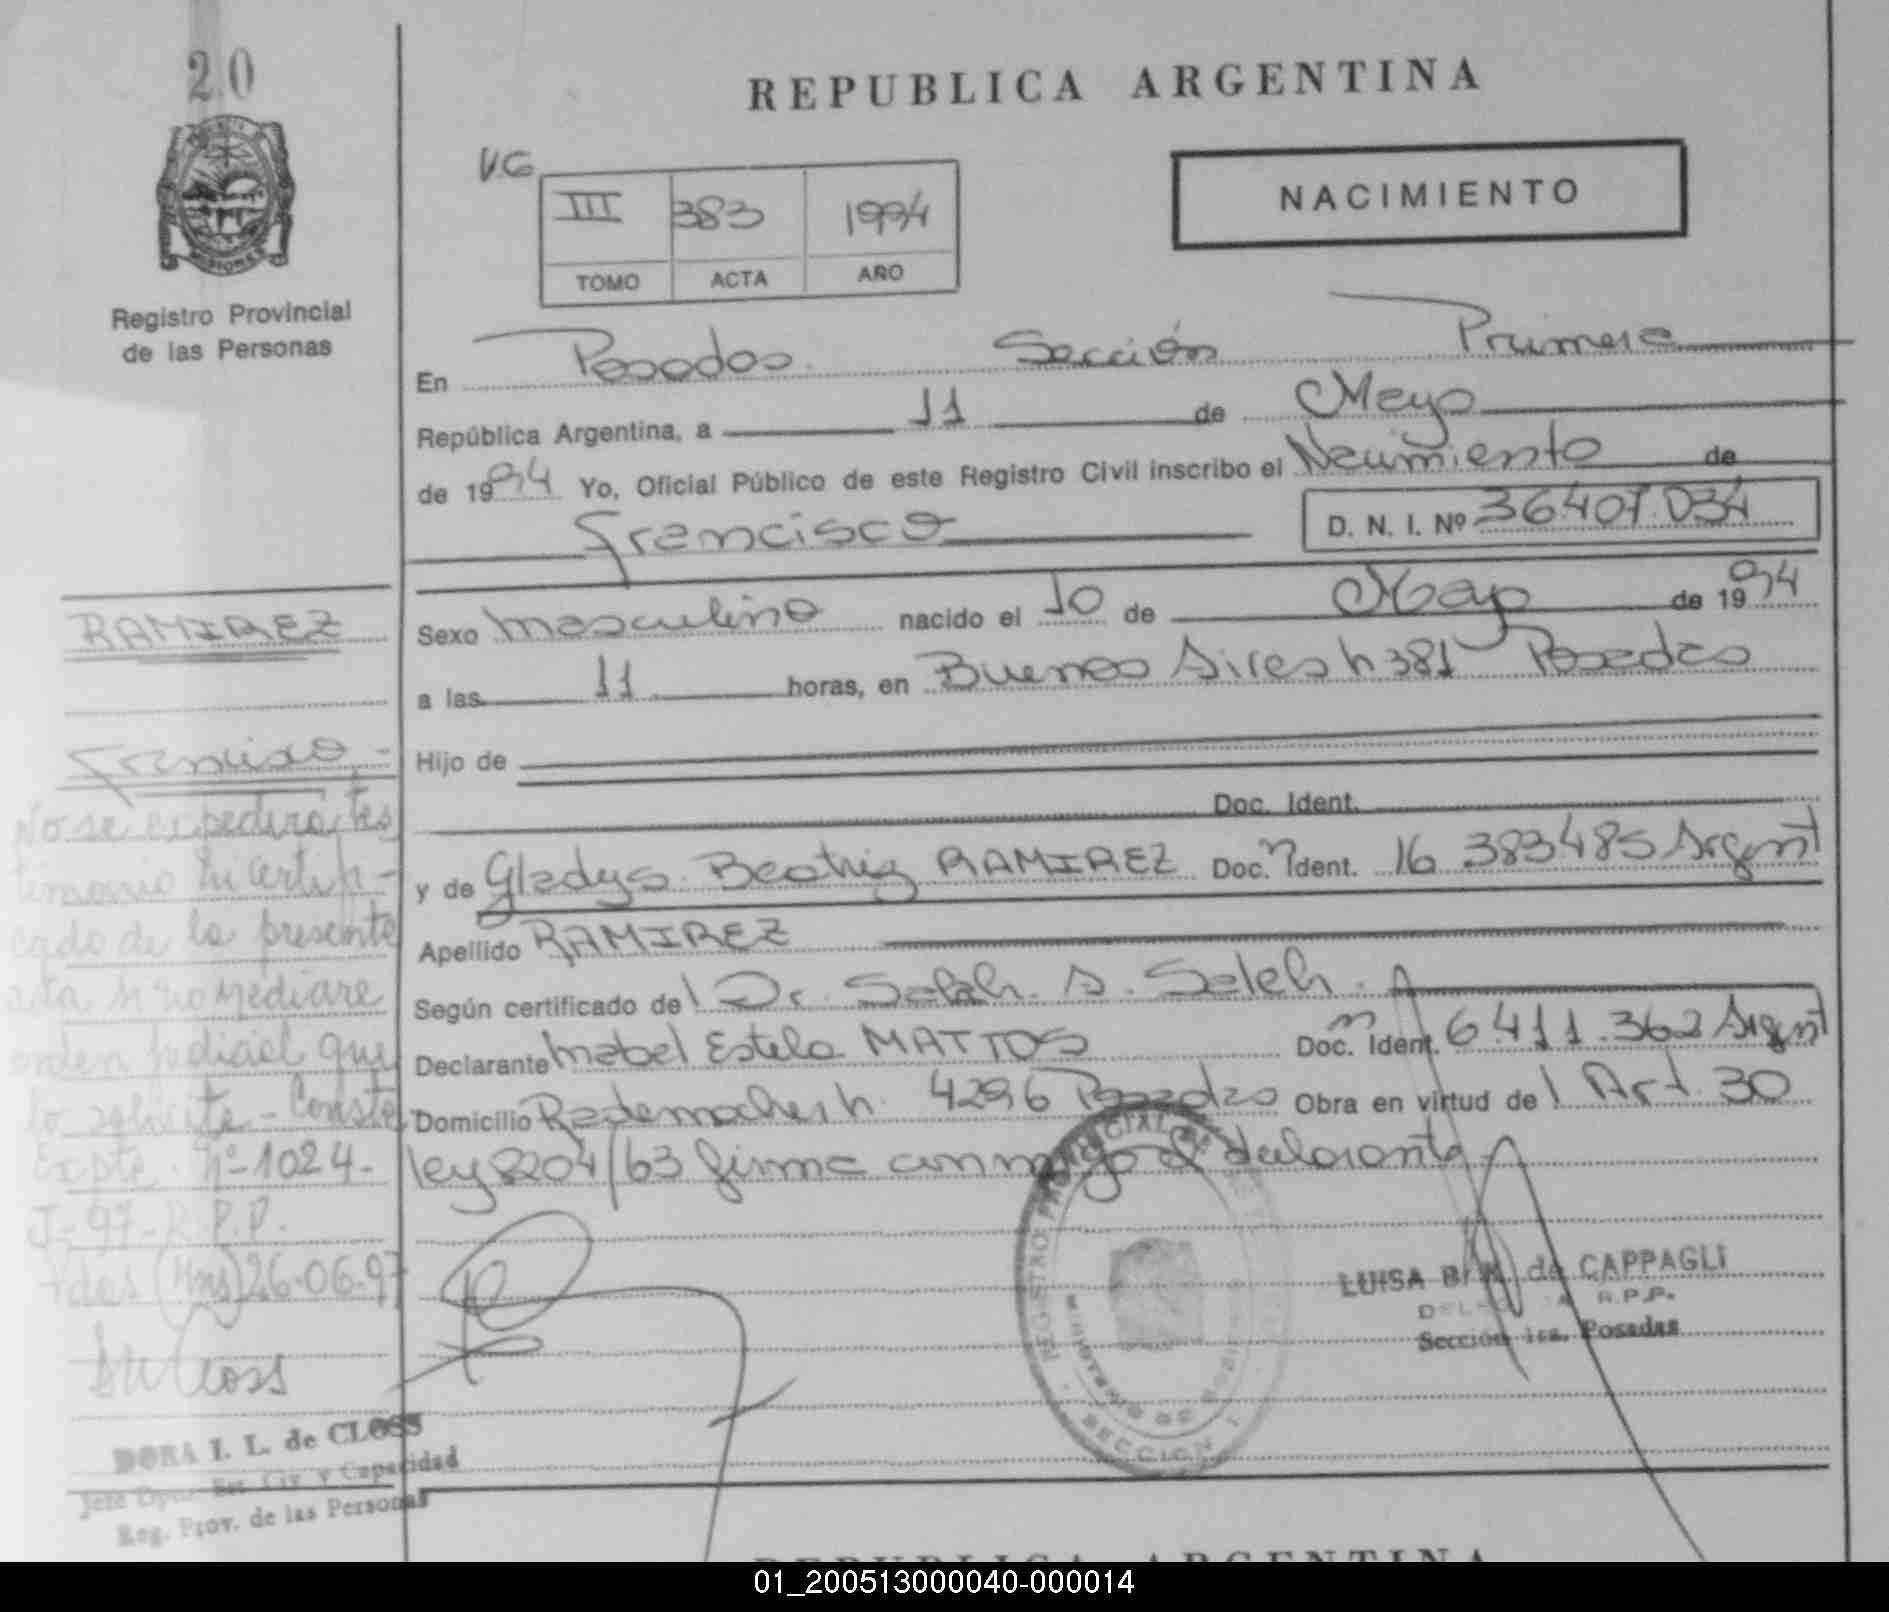 20
MISIONES
Registro Provincial
de las Personas
REPUBLICA ARGENTINA
V.G
III 383 1994
TOMO ACTA AÑO
NACIMIENTO
En Posadas Sección Primera
República Argentina, a 11 de Mayo
de 1994 Yo, Oficial Público de este Registro Civil inscribo el Nacimiento de
Francisco D. N. I. Nº 36.407.034
Sexo masculino nacido el 10 de Mayo de 1994
a las 11 horas, en Buenos Aires n 381 Posadas
Hijo de
Doc. Ident.
y de Gladys Beatriz RAMIREZ Doc. n Ident. 16.383.485 Argent
Apellido RAMIREZ
Según certificado de Dr. Saleh. A. Saleh.
Declarante Mabel Estela MATTOS Doc. n Ident. 6.411.362 Argent
Domicilio Rademacher n. 4296 Posadas Obra en virtud de Art. 30
ley 8204/63 firma conmigo el declarante
RAMIREZ
Francisco -
No se expedirá tes
timonio ni certifi-
cado de la presente
acta si no mediare
orden judicial que
lo solicite - Conste
Expte. nº 1024-
J-97-R.P.P.
Pdas (Mns) 26-06-97
DORA I. L. de CLOSS
Jefe Dpto. Est. Civ. y Capacidad
Reg. Prov. de las Personas
REGISTRO PROVINCIAL DE
MINISTERIO DE GOBIERNO
SECCION 1
LUISA B. de CAPPAGLI
DELEGADA R.P.P.
Sección 1ra. Posadas
REPUBLICA ARGENTINA
01_200513000040-000014